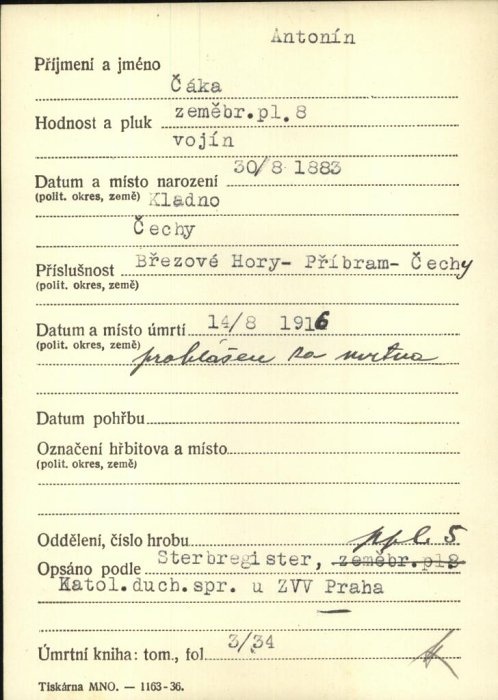 Antonín
Příjmení a jméno
Čáka
Hodnost a pluk zeměbr.pl.8
vojín
Datum a místo narození 30/8 1883
(polit. okres, země) Kladno
Čechy
Příslušnost Březové Hory- Příbram- Čechy
(polit. okres, země)
Datum a místo úmrtí 14/8 1916
(polit. okres, země) prohlášen za mrtva
Datum pohřbu
Označení hřbitova a místo
(polit. okres, země)
Oddělení, číslo hrobu ppl. 5
Opsáno podle Sterbregister, zeměbr.pl8
Katol.duch.spr. u ZVV Praha
Úmrtní kniha: tom., fol. 3/34
Tiskárna MNO. — 1163-36.